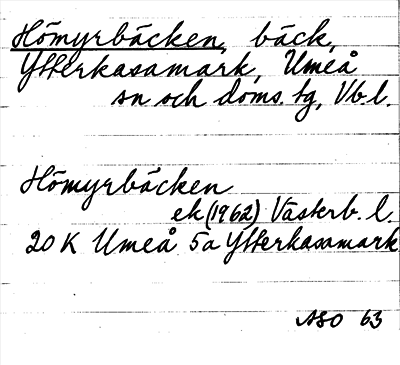 Hömyrbäcken, bäck,
Ytterkasamark, Umeå
sn och doms. tg, Vb l.
Hömyrbäcken
ek (1962) Västerb. l.
20 K Umeå 5a Ytterkasamark
ASO 63